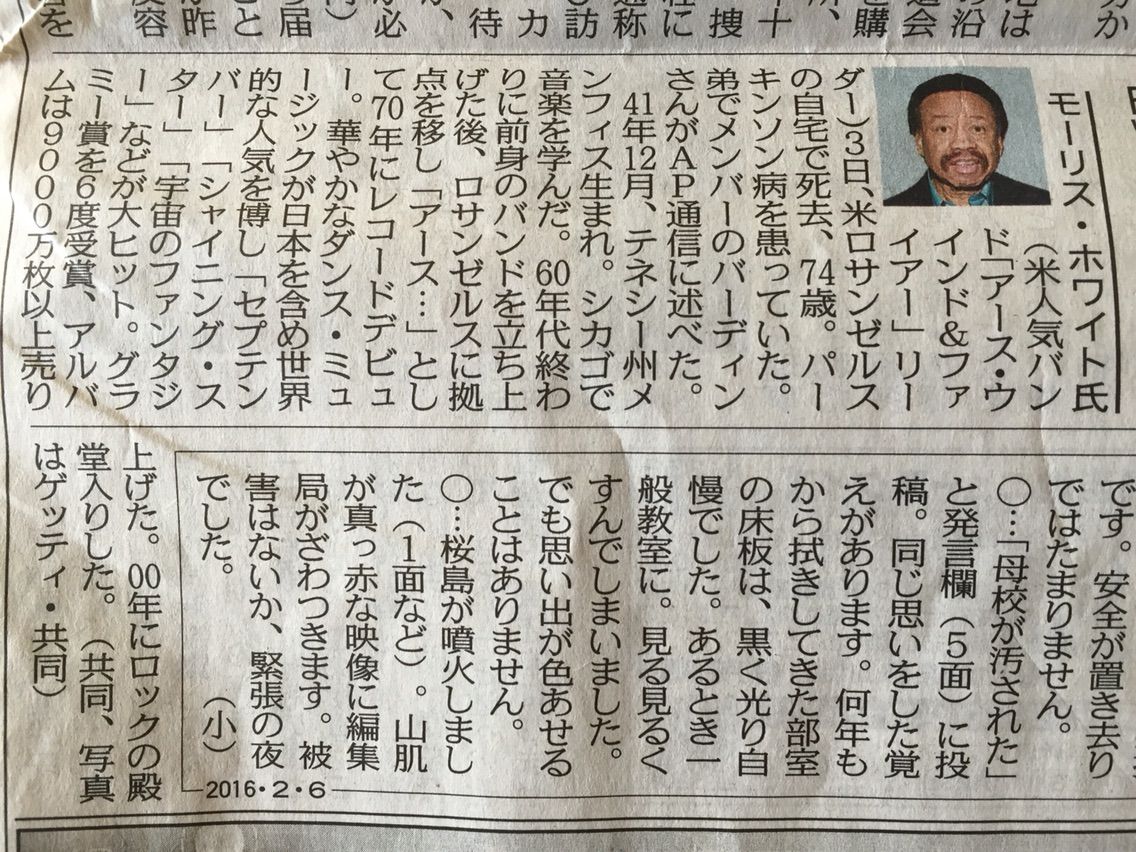 分か
の沿
道会
を購
十
捜
通称
訪
カ
待
が必
ら届
こと
が昨
度容
モーリス・ホワイト氏
（米人気バン
ド「アース・ウ
インド＆ファ
イアー」リー
ダー）３日、米ロサンゼルス
の自宅で死去、74歳。パー
キンソン病を患っていた。
弟でメンバーのバーディン
さんがＡＰ通信に述べた。
41年12月、テネシー州メ
ンフィス生まれ。シカゴで
音楽を学んだ。60年代終わ
りに前身のバンドを立ち上
げた後、ロサンゼルスに拠
点を移し「アース…」とし
て70年にレコードデビュ
ー。華やかなダンス・ミュ
ージックが日本を含め世界
的な人気を博し「セプテン
バー」「シャイニング・ス
ター」「宇宙のファンタジ
ー」などが大ヒット。グラ
ミー賞を６度受賞、アルバ
ムは９０００万枚以上売り
上げた。00年にロックの殿
堂入りした。（共同、写真
はゲッティ・共同）
です。安全が置き去り
ではたまりません。
○…「母校が汚された」
と発言欄（５面）に投
稿。同じ思いをした覚
えがあります。何年も
から拭きしてきた部室
の床板は、黒く光り自
慢でした。あるとき一
般教室に。見る見るく
すんでしまいました。
でも思い出が色あせる
ことはありません。
○…桜島が噴火しまし
た（１面など）。山肌
が真っ赤な映像に編集
局がざわつきます。被
害はないか、緊張の夜
でした。（小）
2016・2・6